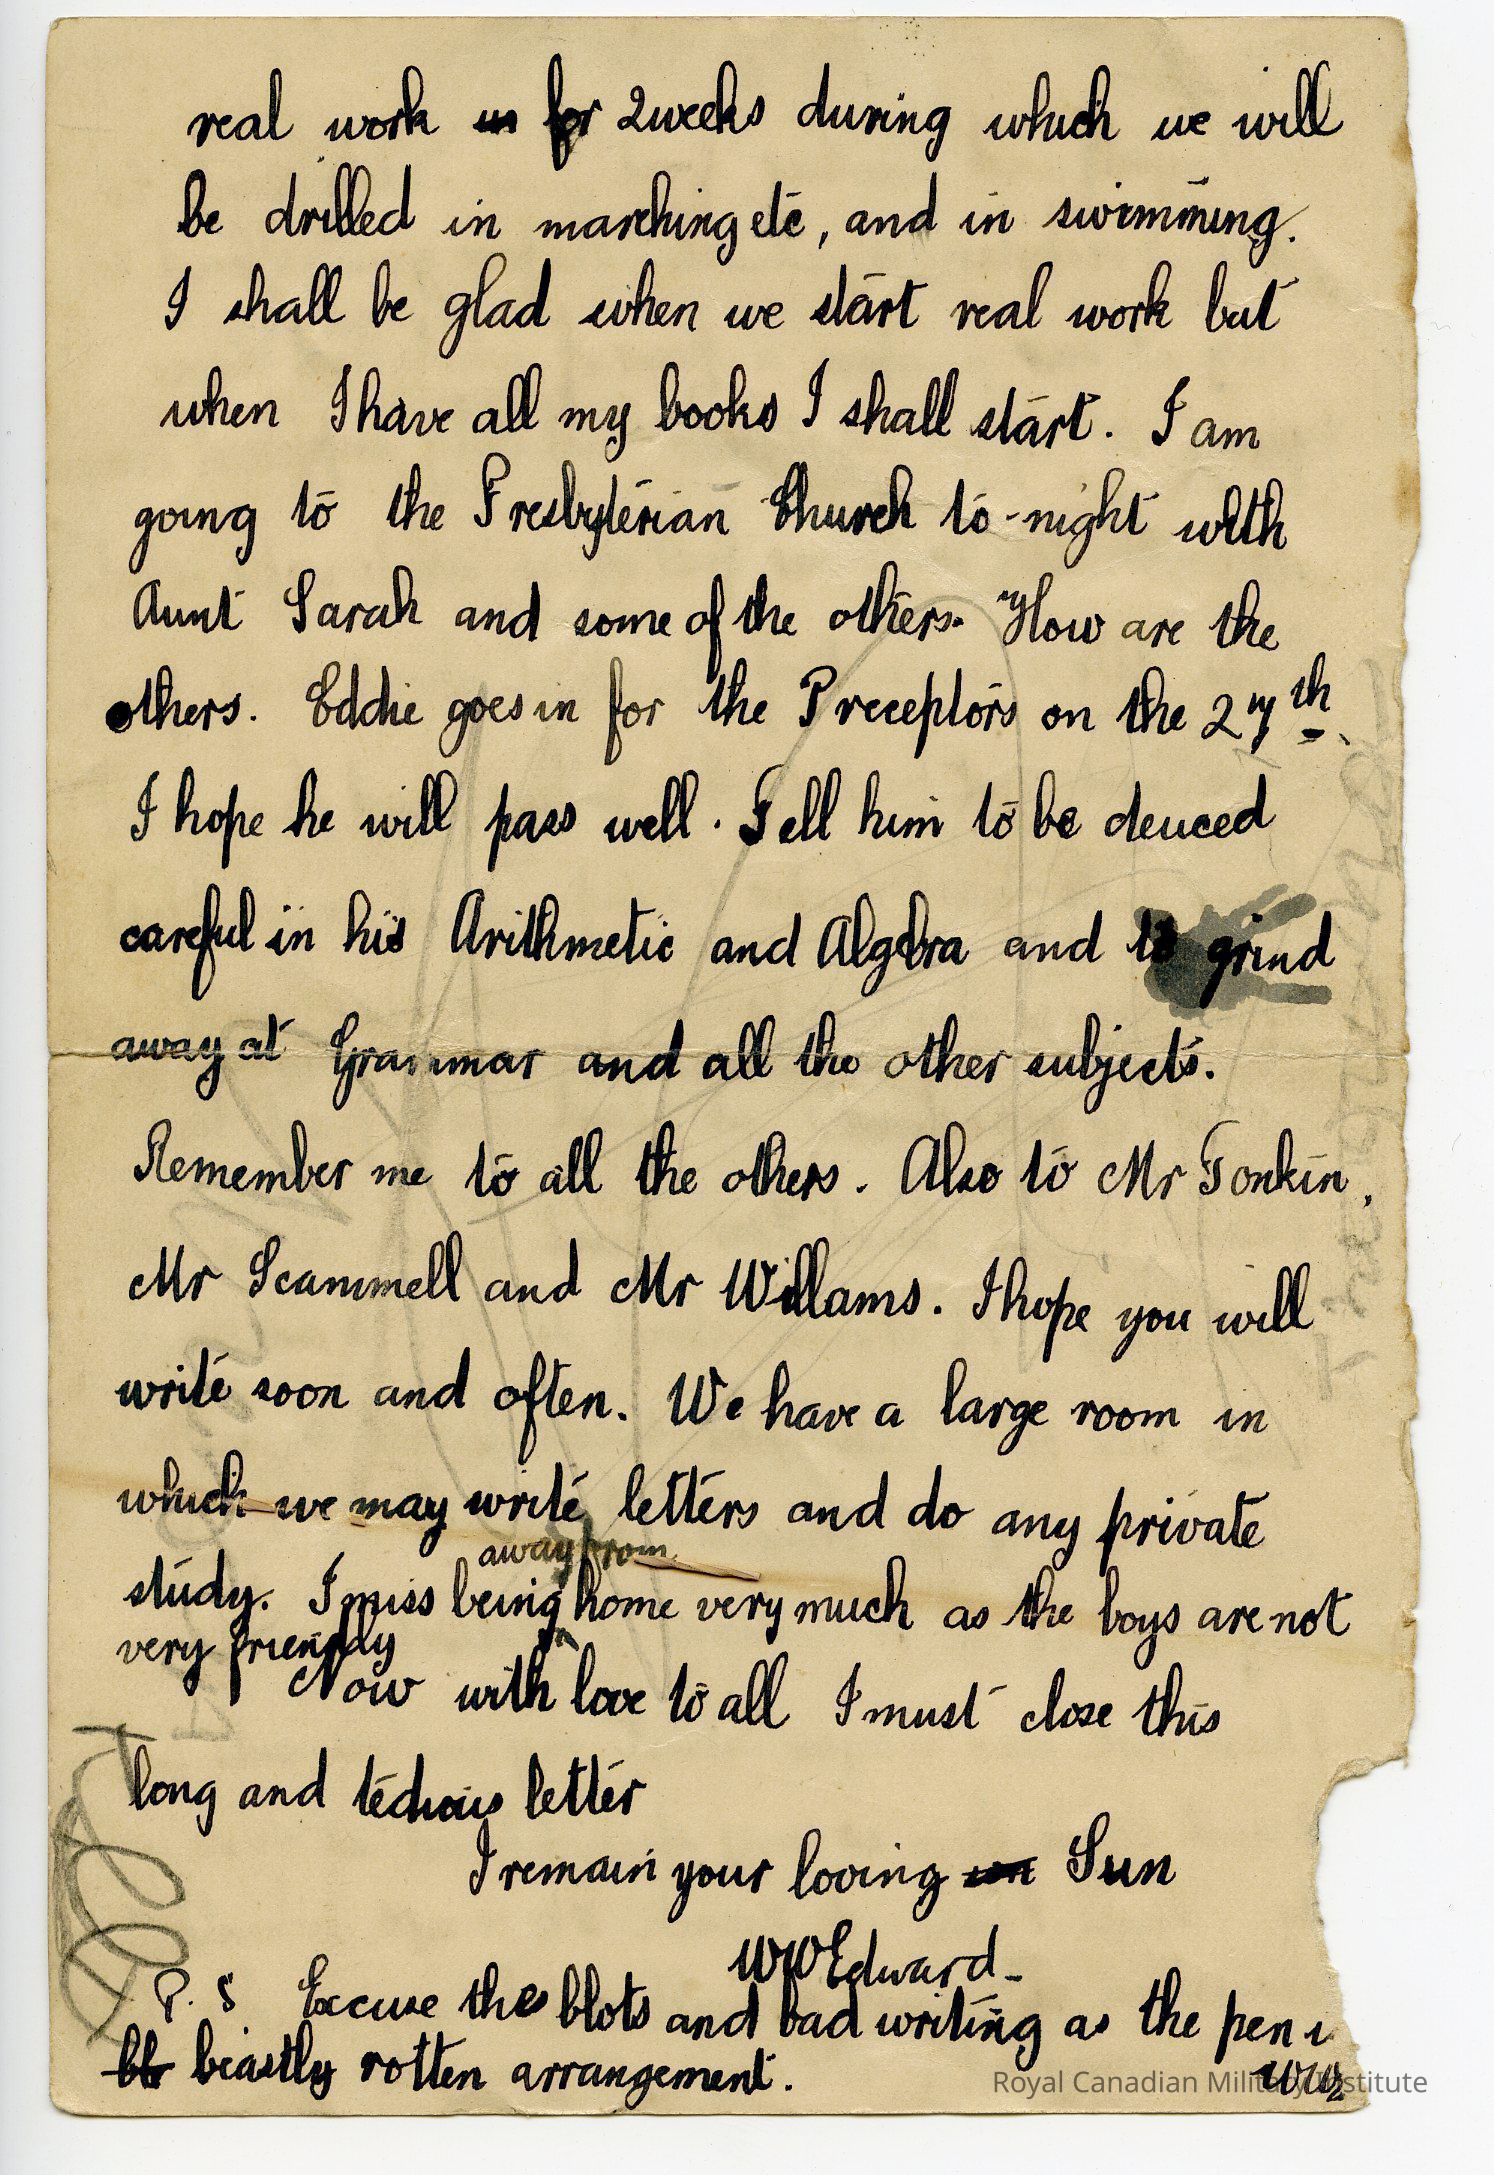 real work in for 2 weeks during which we will
be drilled in marching etc, and in swimming.
I shall be glad when we start real work but
when I have all my books I shall start. I am
going to the Presbyterian Church to-night with
Aunt Sarah and some of the others. How are the
others. Eddie goes in for the Preceptors on the 27th.
I hope he will pass well. Tell him to be deuced
careful in his Arithmetic and Algebra and to grind
away at Grammar and all the other subjects.
Remember me to all the others. Also to Mr Tonkin,
Mr Scammell and Mr Willams. I hope you will
write soon and often. We have a large room in
which we may write letters and do any private
away from
study. I miss being home very much as the boys are not
very friendly
Now with love to all I must close this
long and tedious letter
I remain your loving son Sun
WW Edward_
P.S Excuse the blots and bad writing as the pen
bb beastly rotten arrangement.
Royal Canadian Military Institute